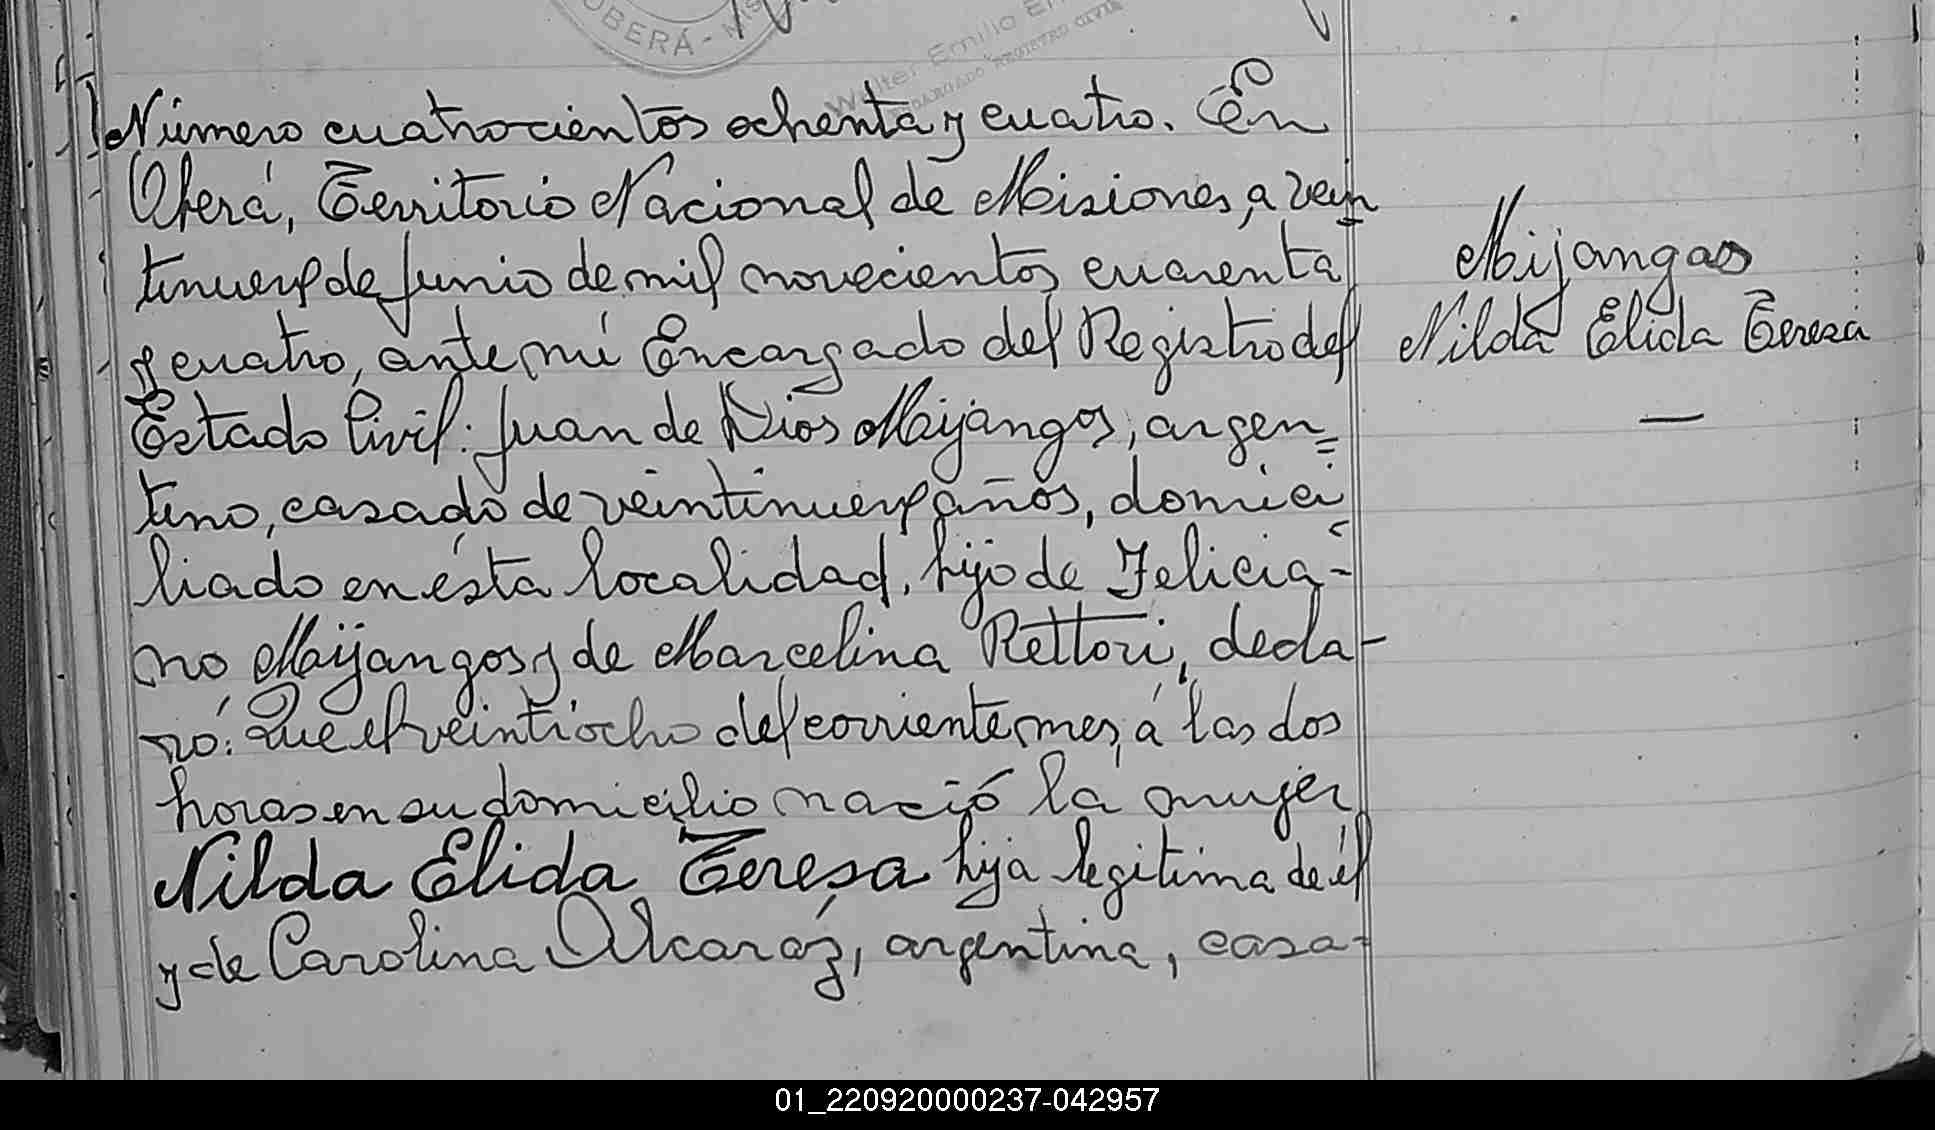 OBERÁ - MIS
Walter Emilio
ENCARGADO REGISTRO CIVIL
Número cuatrocientos ochenta y cuatro. En
Oberá, Territorio Nacional de Misiones, a vein
tinueve de Junio de mil novecientos cuarenta
y cuatro, ante mí Encargado del Registro del
Estado Civil: Juan de Dios Mijangos, argen=
tino, casado de veintinueve años, domici
liado en ésta localidad, hijo de Felicia-
no Mijangos y de Marcelina Rettori, decla-
ró: Que el veintiocho del corriente mes, á las dos
horas en su domicilio nació la mujer
Nilda Elida Teresa hija legitima de él
y de Carolina Alcaráz, argentina, casa-
Mijangos
Nilda Elida Teresa
01_220920000237-042957